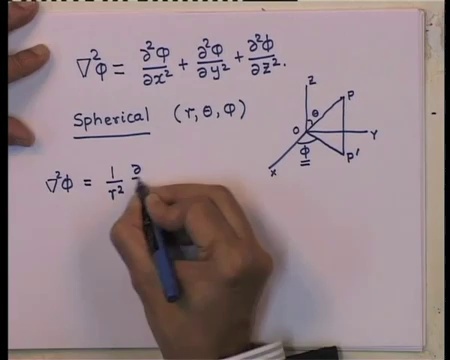 ∇²φ = ∂²φ/∂x² + ∂²φ/∂y² + ∂²φ/∂z².
Spherical (r, θ, φ)
Z
P
θ
O
Y
φ
P'
X
∇²φ = 1/r² ∂